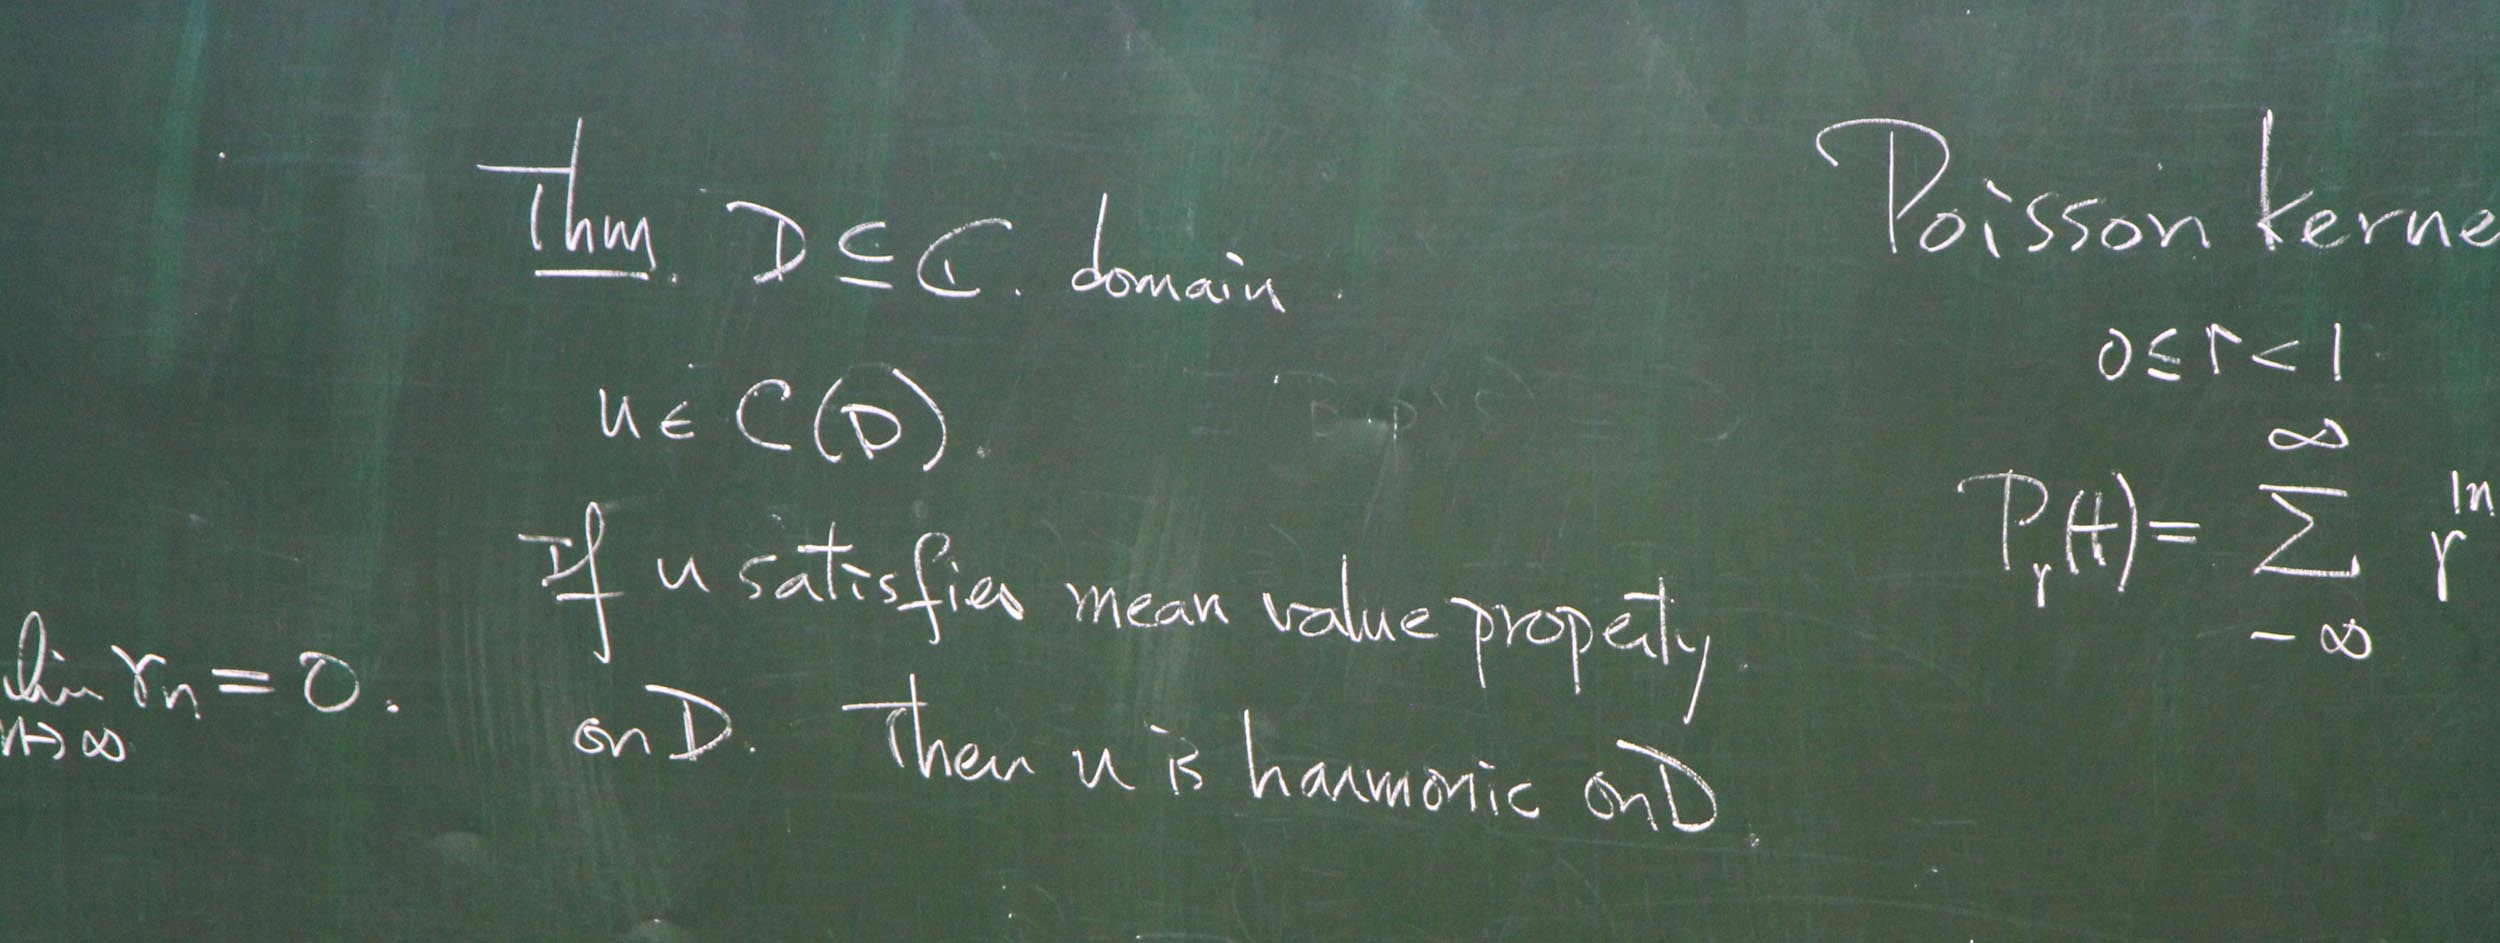 Thm. D ⊆ ℂ. domain.
u ∈ C(D).
If u satisfies mean value property.
on D. Then u is harmonic on D.
lim rn = 0.
n→∞
Poisson kerne
0 ≤ r < 1
∞
Pr(t) = Σ r|n
-∞